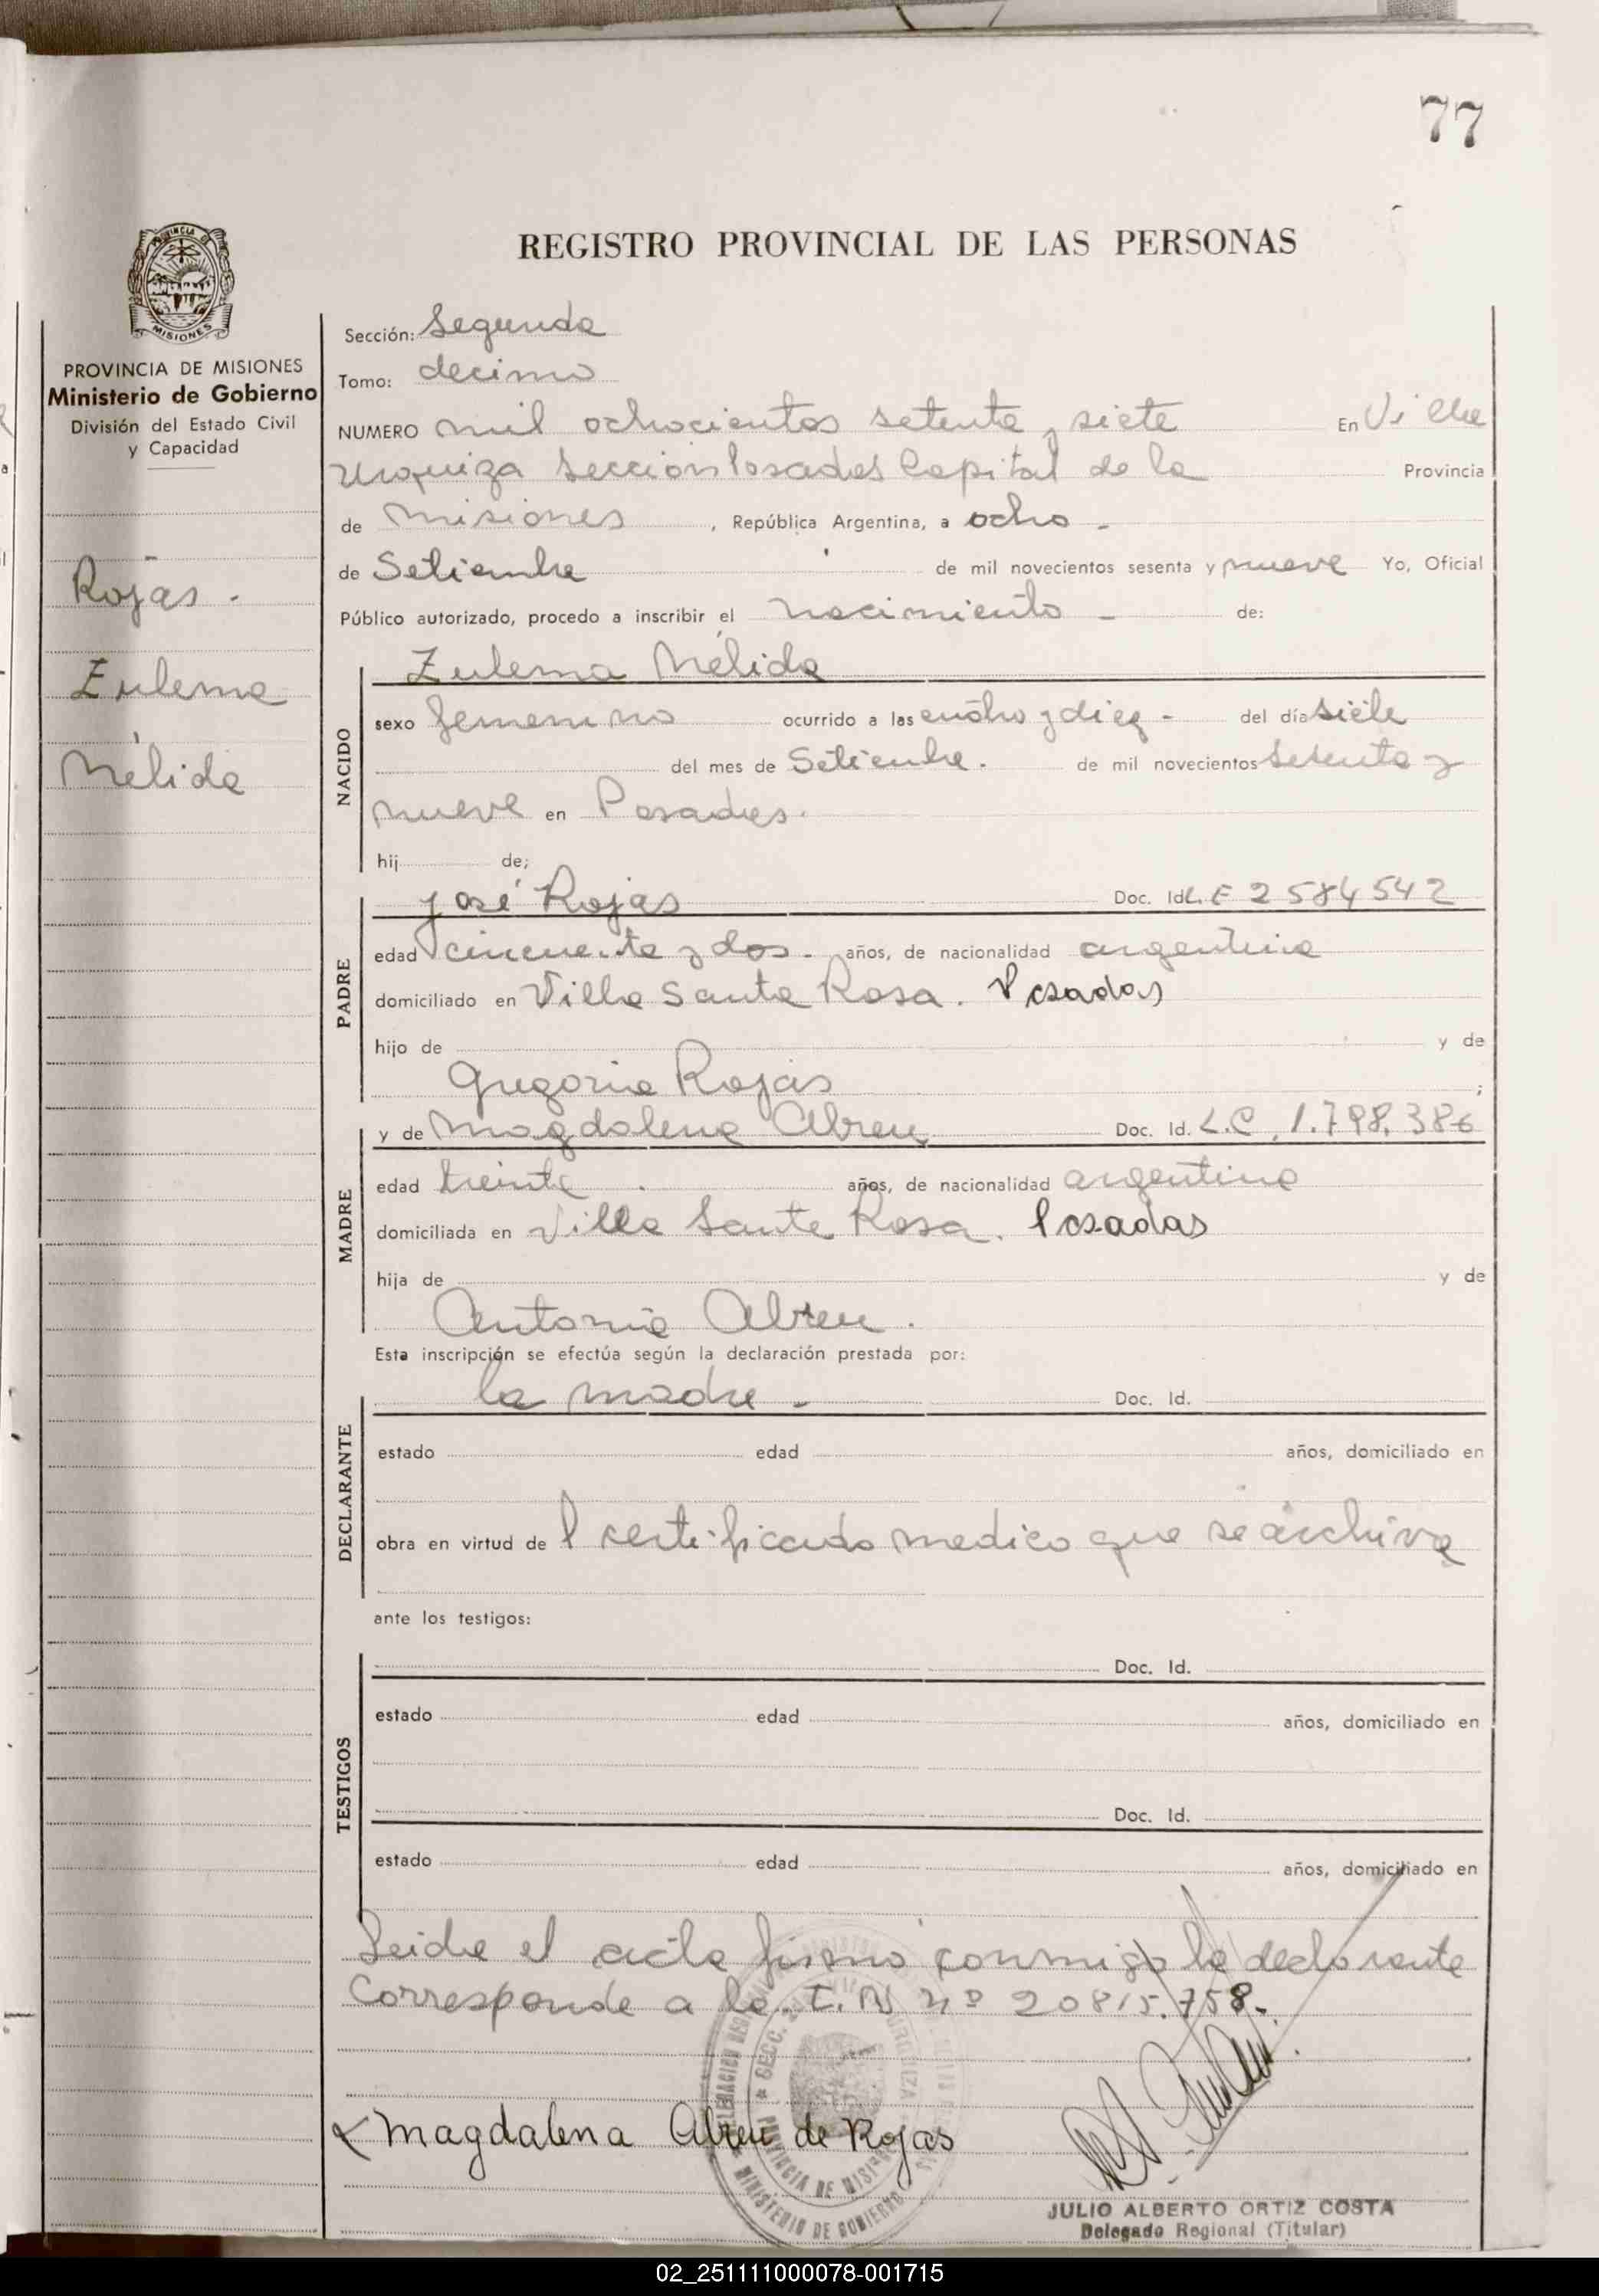 77
REGISTRO PROVINCIAL DE LAS PERSONAS
PROVINCIA DE MISIONES
Ministerio de Gobierno
División del Estado Civil
y Capacidad
Rojas -
Zulema
Nélida
Sección: Segunda
Tomo: decimo
NUMERO mil ochocientos setenta y siete En Villa
Urquiza Sección Posadas Capital de la Provincia
de Misiones, República Argentina, a ocho -
de Setiembre de mil novecientos sesenta y nueve Yo, Oficial
Público autorizado, procedo a inscribir el nacimiento - de:
NACIDO
Zulema Nélida
sexo femenino ocurrido a las cuatro y diez - del día siete
del mes de Setiembre. de mil novecientos sesenta y
nueve en Posadas.
hij de;
PADRE
José Rojas Doc. Id. L.E 2584542
edad cincuenta y dos. años, de nacionalidad argentina
domiciliado en Villa Santa Rosa. Posadas
hijo de y de
Gregoria Rojas ;
MADRE
y de Magdalena Abreu Doc. Id. L.C. 1.798.386
edad treinta años, de nacionalidad argentina
domiciliada en Villa Santa Rosa. Posadas
hija de y de
Antonia Abreu.
Esta inscripción se efectúa según la declaración prestada por:
DECLARANTE
la madre - Doc. Id.
estado edad años, domiciliado en
obra en virtud de l certificado medico que se archiva
ante los testigos:
TESTIGOS
Doc. Id.
estado edad años, domiciliado en
Doc. Id.
estado edad años, domiciliado en
Leida el acta firma conmigo la declarante
Corresponde a la I. N nº 20815.758.-
Magdalena Abreu de Rojas
SECC.
PROVINCIA DE MISIONES
MINISTERIO DE GOBIERNO
JULIO ALBERTO ORTIZ COSTA
Delegado Regional (Titular)
02_251111000078-001715